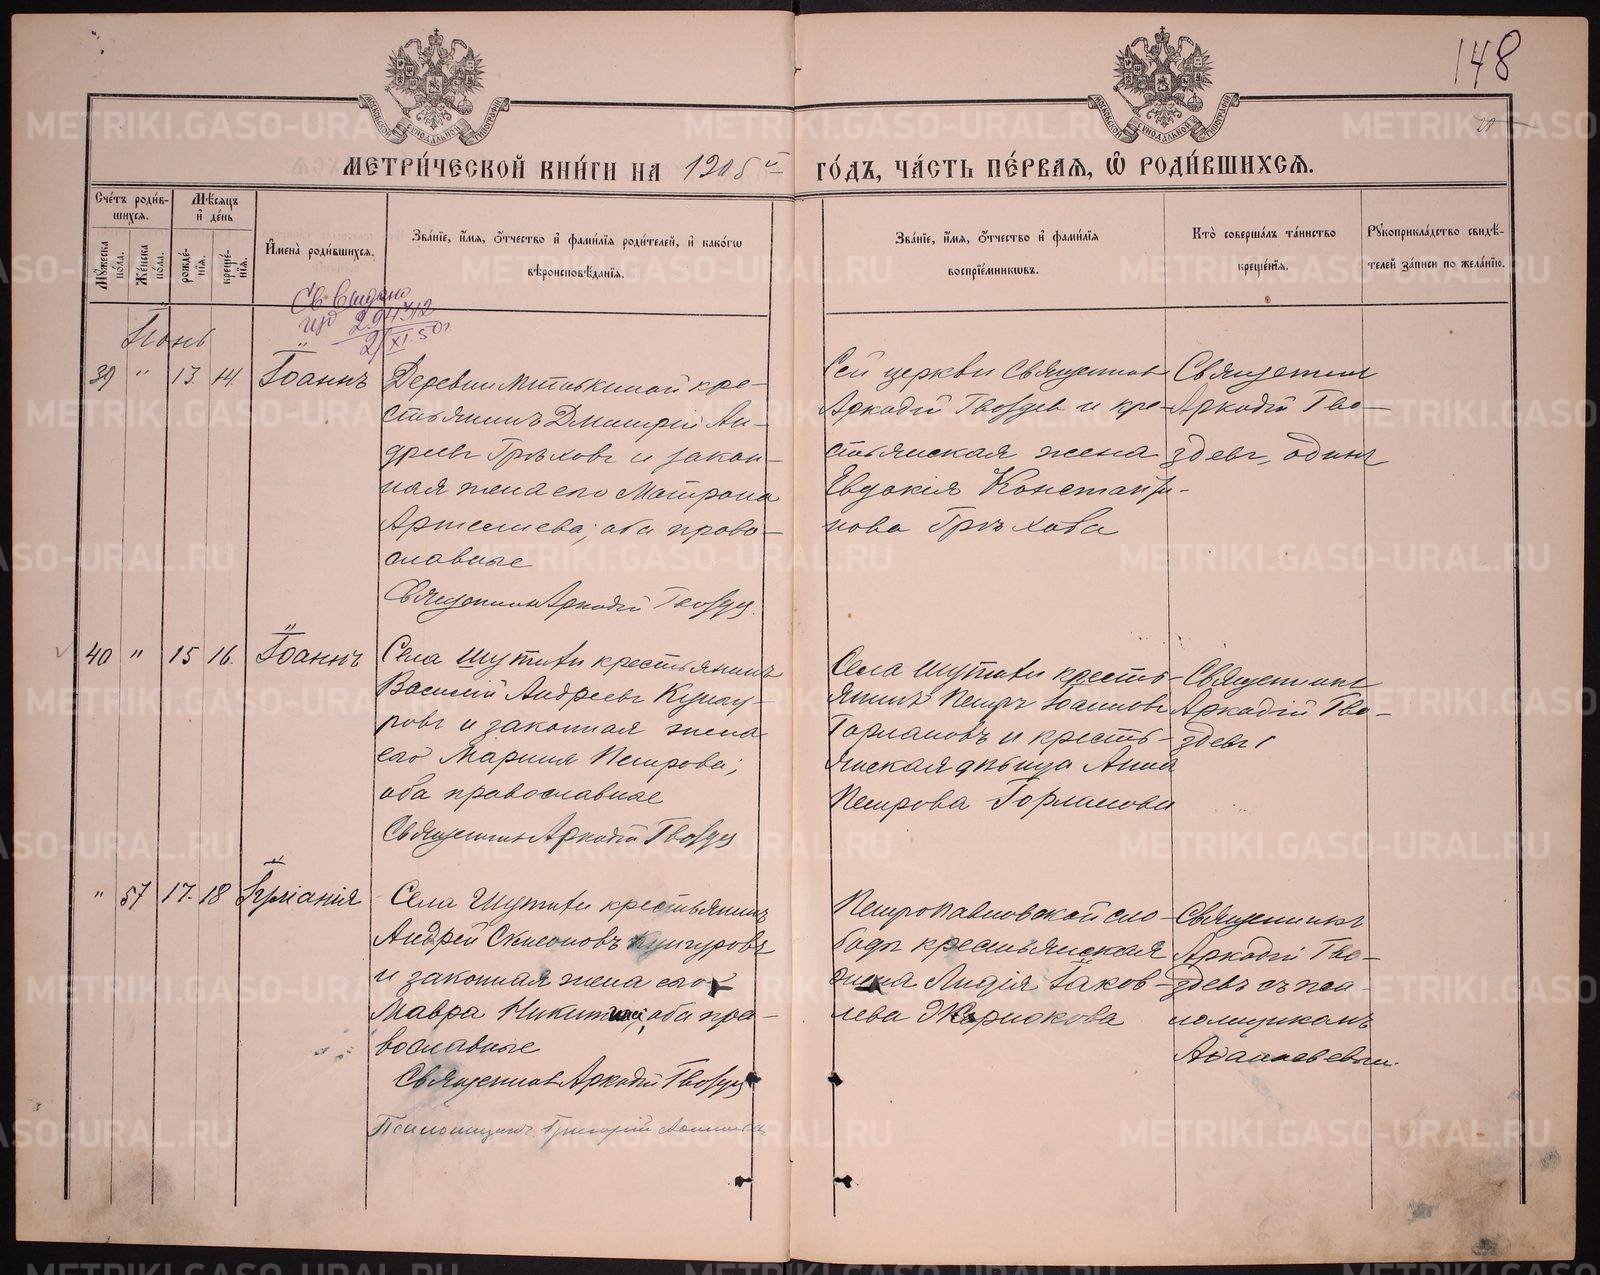 148
МЕТРИ́ЧЕСКОЙ КНИ́ГИ НА 1905 й ГО́ДЪ, ЧА́СТЬ ПЕ́РВАЯ, Ѡ РОДИ́ВШИХСЯ.
Сче́тъ роди́в-
шихся.
Му́жеска по́ла.
Же́нска по́ла.
Мѣ́сяцъ и де́нь
рожде́-
нїя.
креще́-
нїя.
Имена̀ роди́вшихся.
Зва́нїе, и́мя, о́тчество и фами́лїя роди́телей, и како́гѡ
вѣроисповѣ́данїя.
Зва́нїе, и́мя, о́тчество и фами́лїя
воспрїе́мникѡвъ.
Кто̀ соверша́лъ та́инство
креще́нїя.
Рꙋкоприкла́дство свидѣ́-
телей за́писи по жела́нїю.
Св выдано
Іюнь
39 " 13. 14. Іоаннъ
Деревни Мѣтькиной кре-
стьянинъ Дмитрій Ан-
дреевъ Грѣховъ и закон-
ная жена его Матрона
Артемиева; оба право-
славные
Священник Аркадій Гвоздев
Сей церкви Священник
Аркадій Гвоздев и кре-
стьянская жена
Евдокія Константи-
нова Грѣхова
Священник
Аркадій Гво-
здевъ, один
40 " 15 16. Іоаннъ
Села Шутихи крестьянинъ
Василій Андреевъ Кунгу-
ровъ и законная жена
его Мария Петрова;
оба православные
Священник Аркадій Гвоздев
Села Шутихи кресть-
янинъ Петръ Іоанновъ
Горлановъ и кресть-
янская дѣвица Анна
Петрова Горланова
Священникъ
Аркадій Гво-
здевъ
" 57 17. 18 Іуліанія
Села Шутихи крестьянинъ
Андрей Симоновъ Кунгуровъ
и законная жена его
Мавра Никитина; оба пра-
вославные
Священник Аркадій Гвоздев
Псаломщикъ Григорій
Петропавловской сло-
боды крестьянская
жена Лидія Іаков-
лева
Священникъ
Аркадій Гво-
здевъ съ пса-
ломщикомъ